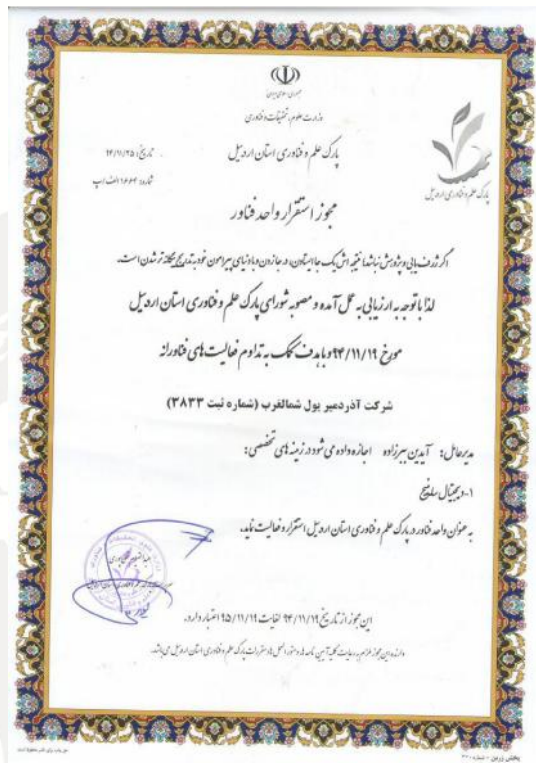 جمهوری اسلامی ایران
وزارت علوم، تحقیقات و فناوری
پارک علم و فناوری استان اردبیل
تاریخ: ۹۴/۱۱/۲۵
شماره: ۱۶۶۴ الف/پ
پارک علم و فناوری اردبیل
مجوز استقرار واحد فناور
اگر ژرف یابی و پژوهش نباشد، نتیجه اش یک جا ایستادن، درجا زدن و با دنیای پیرامون خود به تدریج بیگانه تر شدن است.
لذا با توجه به ارزیابی به عمل آمده و مصوبه شورای پارک علم و فناوری استان اردبیل
مورخ ۹۴/۱۱/۱۹ و با هدف کمک به تداوم فعالیت های فناورانه
شرکت آذردمیر یول شمالغرب (شماره ثبت ۳۸۳۳)
مدیرعامل: آیدین ببرزاده اجازه داده می شود در زمینه های تخصصی:
۱-دیجیتال
به عنوان واحد فناور در پارک علم و فناوری استان اردبیل استقرار و فعالیت نماید.
این مجوز از تاریخ ۹۴/۱۱/۱۹ لغایت ۹۵/۱۱/۱۹ اعتبار دارد.
دارنده این مجوز ملزم به رعایت کلیه آیین نامه ها و دستورالعمل ها و مقررات پارک علم و فناوری استان اردبیل می باشد.
حق چاپ برای ناشر محفوظ است
پخش زرین - شماره ۲۲۰